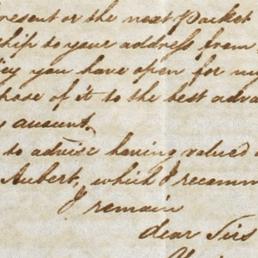 resent or the next Packet
ship to your address from
you have open for my
pose of it to the best adva
account.
to advise having valued
Aubert, which I recomm
I remain
dear Sirs